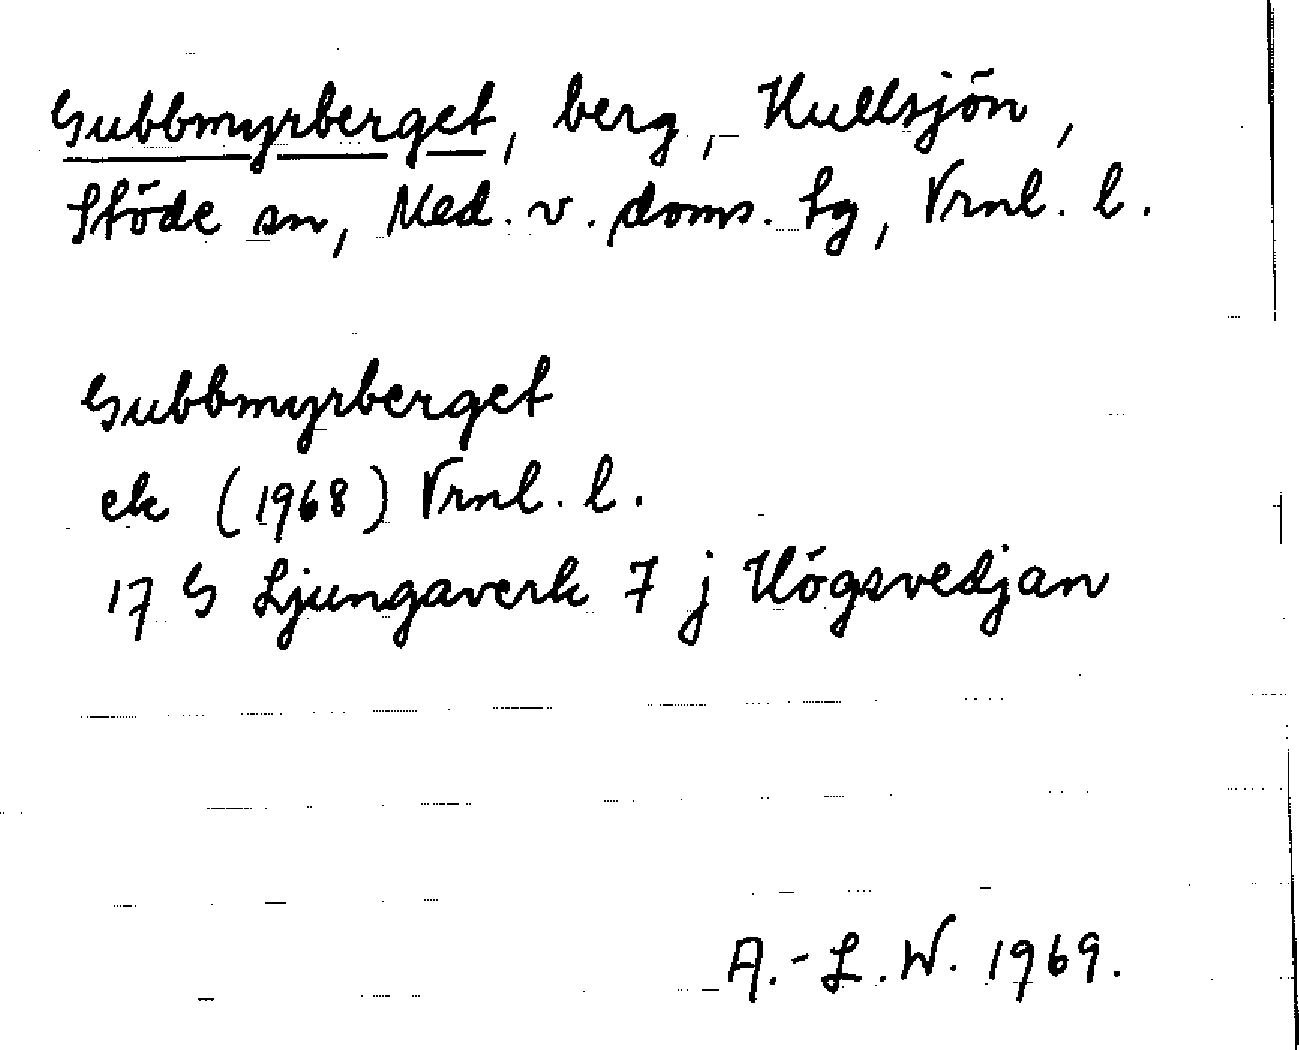 Gubbmyrberget, berg, Hullsjön,
Stöde sn, Med. v. doms. tg, Vrnl. l.
Gubbmyrberget
ek (1968) Vrnl. l.
17 G Ljungaverk 7 j Högsvedjan
A.-L.W. 1969.